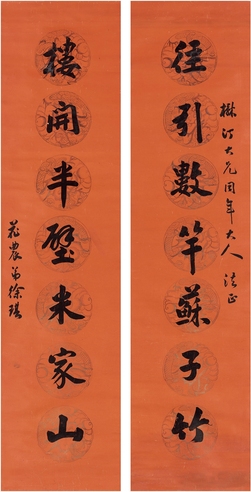 楙汀大兄同年大人法正
径引數竿蘇子竹
樓開半壁米家山
花農弟徐琪